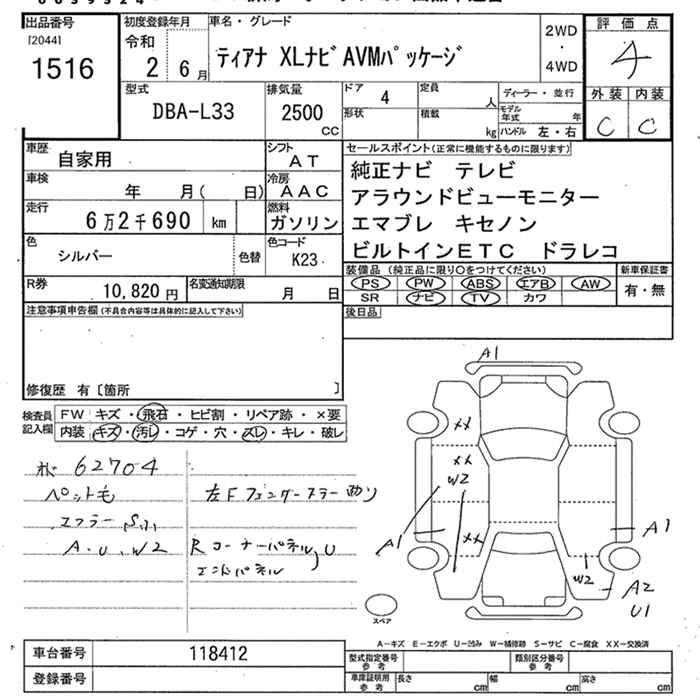 出品番号
[2044]
1516
初度登録年月
令和
2 6月
車名・グレード
ティアナ XLナビAVMパッケージ
2WD
・
4WD
評価点
4
外装 内装
C C
型式
DBA-L33
排気量
2500
CC
ドア 4
形状
定員 人
積載 kg
ディーラー・並行
モデル年式 年
ハンドル 左・右
車歴
自家用
シフト
AT
車検
年 月( 日)
冷房
AAC
走行
6万2千690 km
燃料
ガソリン
色
シルバー
色替
色コード
K23
R券
10,820 円
名変通知期限
月 日
セールスポイント(正常に機能するものに限ります)
純正ナビ テレビ
アラウンドビューモニター
エマブレ キセノン
ビルトインETC ドラレコ
装備品 (純正品に限り○をつけてください)
PS PW ABS エアB AW
SR ナビ TV カワ
新車保証書
有・無
後日品
注意事項申告欄 (不具合内容等は具体的に記入して下さい)
修復歴 有〔箇所 〕
検査員
記入欄
FW キズ・飛石・ヒビ割・リペア跡・×要
内装 キズ・汚レ・コゲ・穴・スレ・キレ・破レ
62704
ペット毛
A.U.W2
左Fフェンダー
Rコーナーパネル U
エンドパネル
A1
XX
XX
W2
XX
A1
A1
W2
A2
U1
スペア
A−キズ E−エクボ U−凹み W−補修跡 S−サビ C−腐食 XX−交換済
車台番号
118412
登録番号
型式指定番号
参考
類別区分番号
参考
車庫証明用
参考
長さ cm
幅 cm
高さ cm